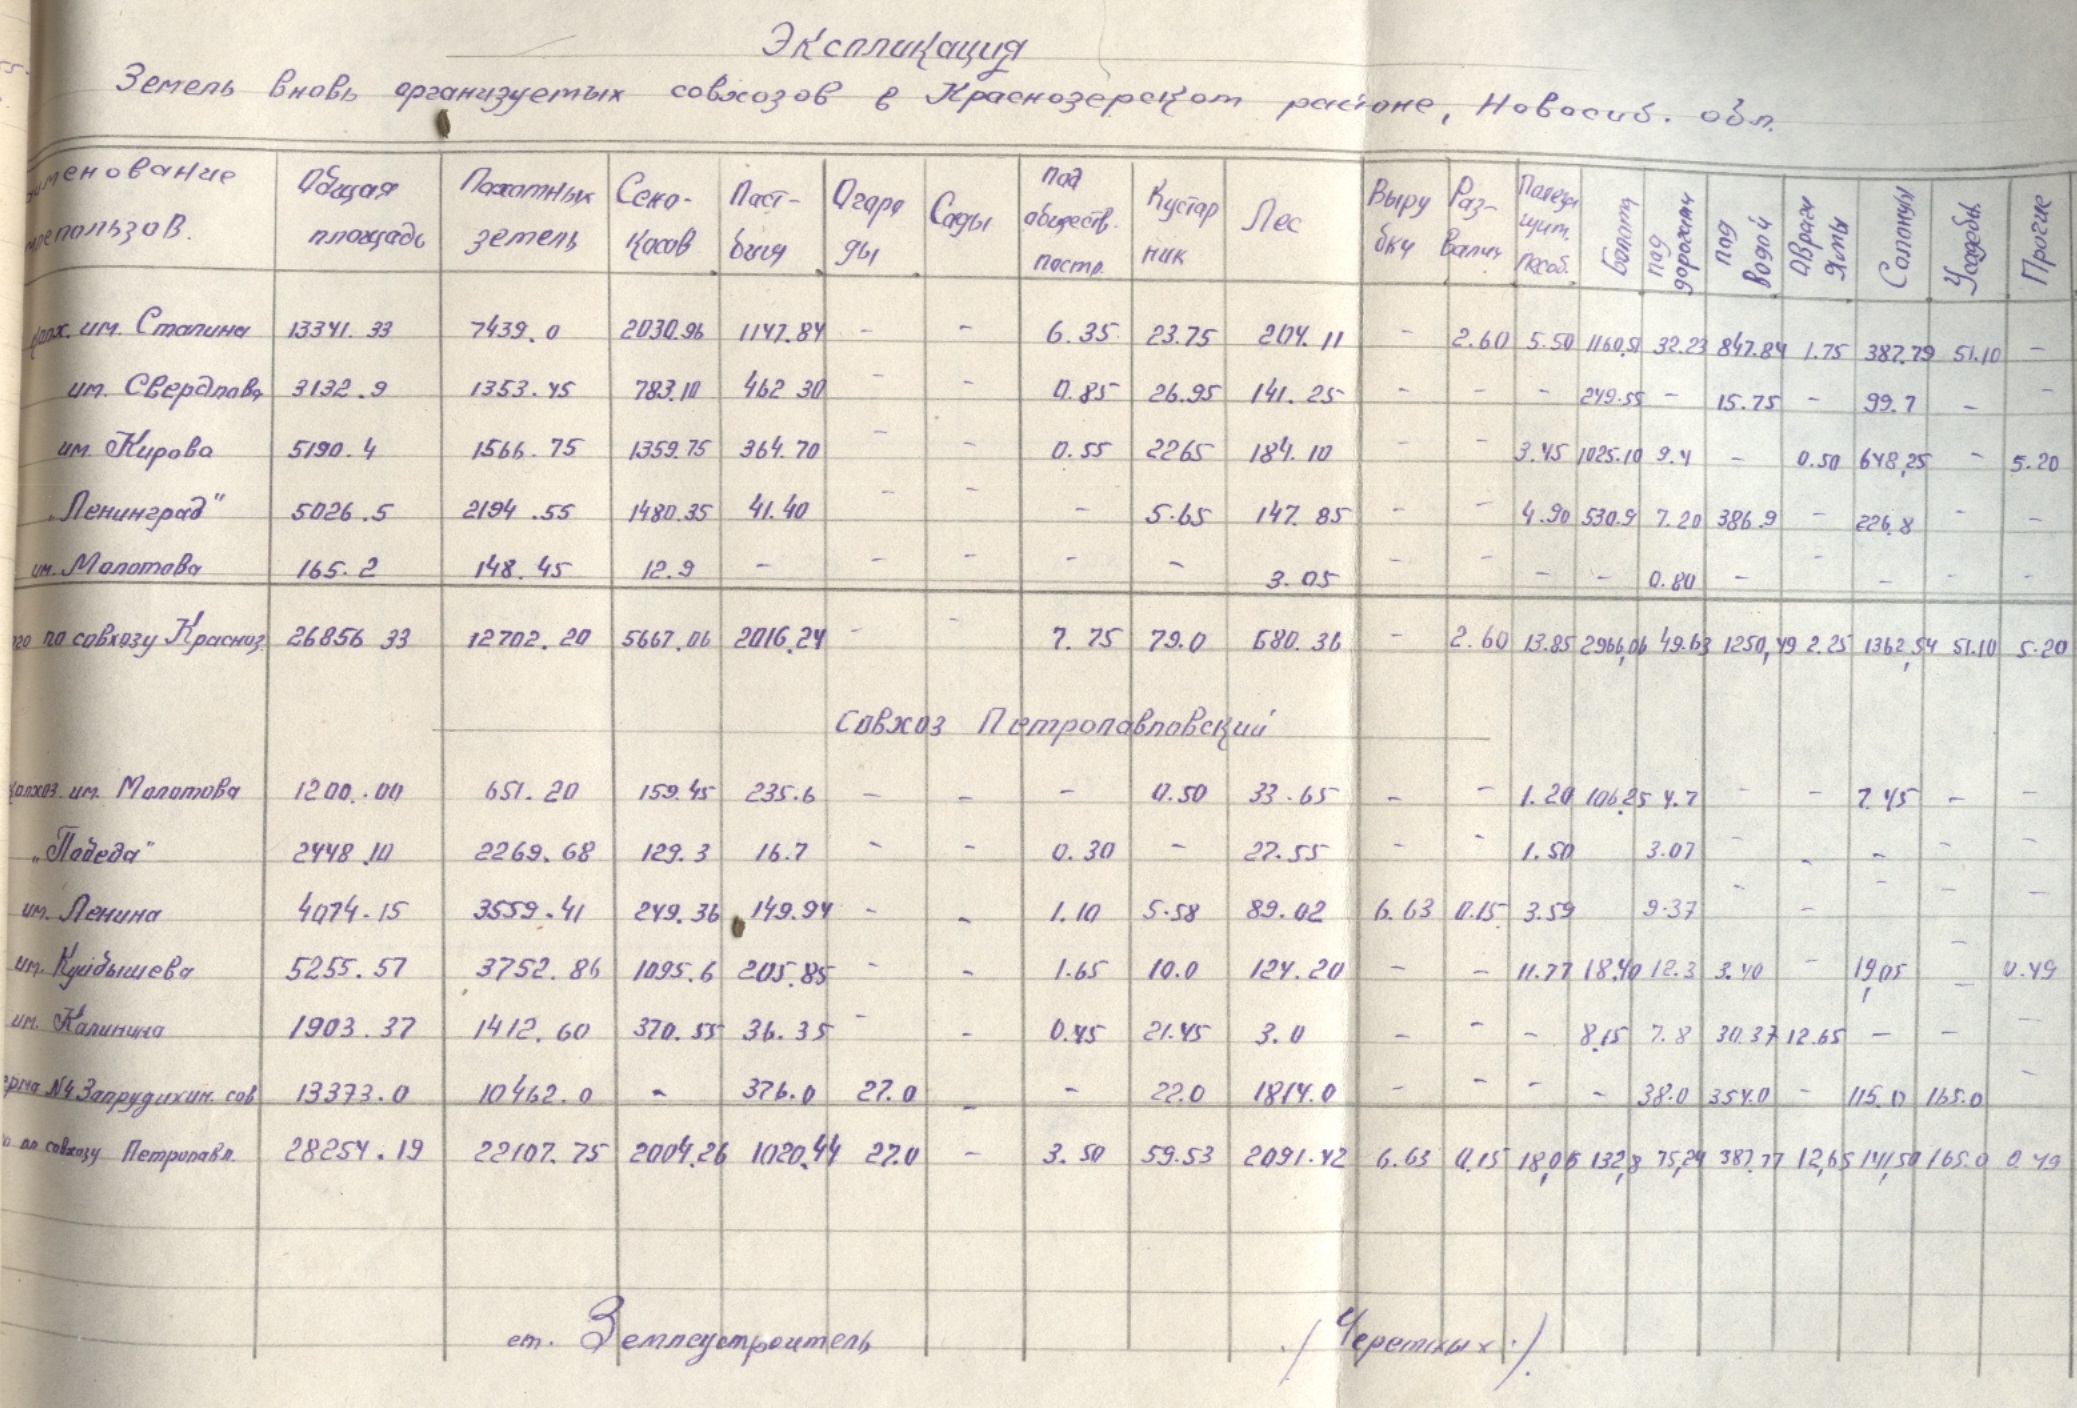 Экспликация
Земель вновь организуемых совхозов в Краснозерском районе, Новосиб. обл.
именование землепользов. Общая площадь Пахотных земель Сено-косов Паст-бищ Огаро ды Сады под обществ. постр. Кустар ник Лес Выру бки Раз-валин Полеза щит. лесоб. Болота под дорогами под водой Овраги Ямы Солонцы Усадебн. Прочие
колх. им. Сталина 13341.33 7439.0 2030.96 1147.84 - - 6.35 23.75 204.11 - 2.60 5.50 1160,51 32.23 847.84 1.75 387.79 51.10 -
им. Свердлова 3132.9 1353.45 783.10 462 30 - - 0.85 26.95 141.25 - - - 249.55 - 15.75 - 99.7 - -
им. Кирова 5190.4 1566.75 1359.75 364.70 - - 0.55 2265 184.10 - - 3.45 1025.10 9.4 - 0.50 648,25 - 5.20
„Ленинград" 5026.5 2194.55 1480.35 41.40 - - - 5.65 147.85 - - 4.90 530.9 7.20 386.9 - 226.8 - -
им. Молотова 165.2 148.45 12.9 - - - - - 3.05 - - - - 0.80 - - - - -
го по совхозу Красноз. 26856 33 12702.20 5667.06 2016.24 - - 7.75 79.0 680.36 - 2.60 13.85 2966,06 49.63 1250,49 2.25 1362,54 51.10 5.20
Совхоз Петропавловский
колхоз им. Молотова 1200.00 651.20 159.45 235.6 - - - 0.50 33.65 - - 1.20 106,25 4.7 - - 7.45 - -
„Победа" 2448.10 2269.68 129.3 16.7 - - 0.30 - 27.55 - - 1.50 3.07 - - - - -
им. Ленина 4074.15 3559.41 249.36 149.94 - - 1.10 5.58 89.02 6.63 0.15 3.59 9.37 - - - - -
им. Куйбышева 5255.57 3752.86 1095.6 205.85 - - 1.65 10.0 124.20 - - 11.77 18,40 12.3 3.40 - 19,05 - 0.49
им. Калинина 1903.37 1412.60 370.55 36.35 - - 0.45 21.45 3.0 - - - 8,15 7.8 30.37 12.65 - - -
ерма №4 Запрудихин. сов 13373.0 10462.0 - 376.0 27.0 - - 22.0 1814.0 - - - - 38.0 354.0 - 115.0 165.0 -
о по совхозу Петропавл. 28254.19 22107.75 2004.26 1020.44 27.0 - 3.50 59.53 2091.42 6.63 0.15 18,06 132,8 75,24 387.77 12,65 141,50 165.0 0.49
ст. Землеустроитель /Черемных./